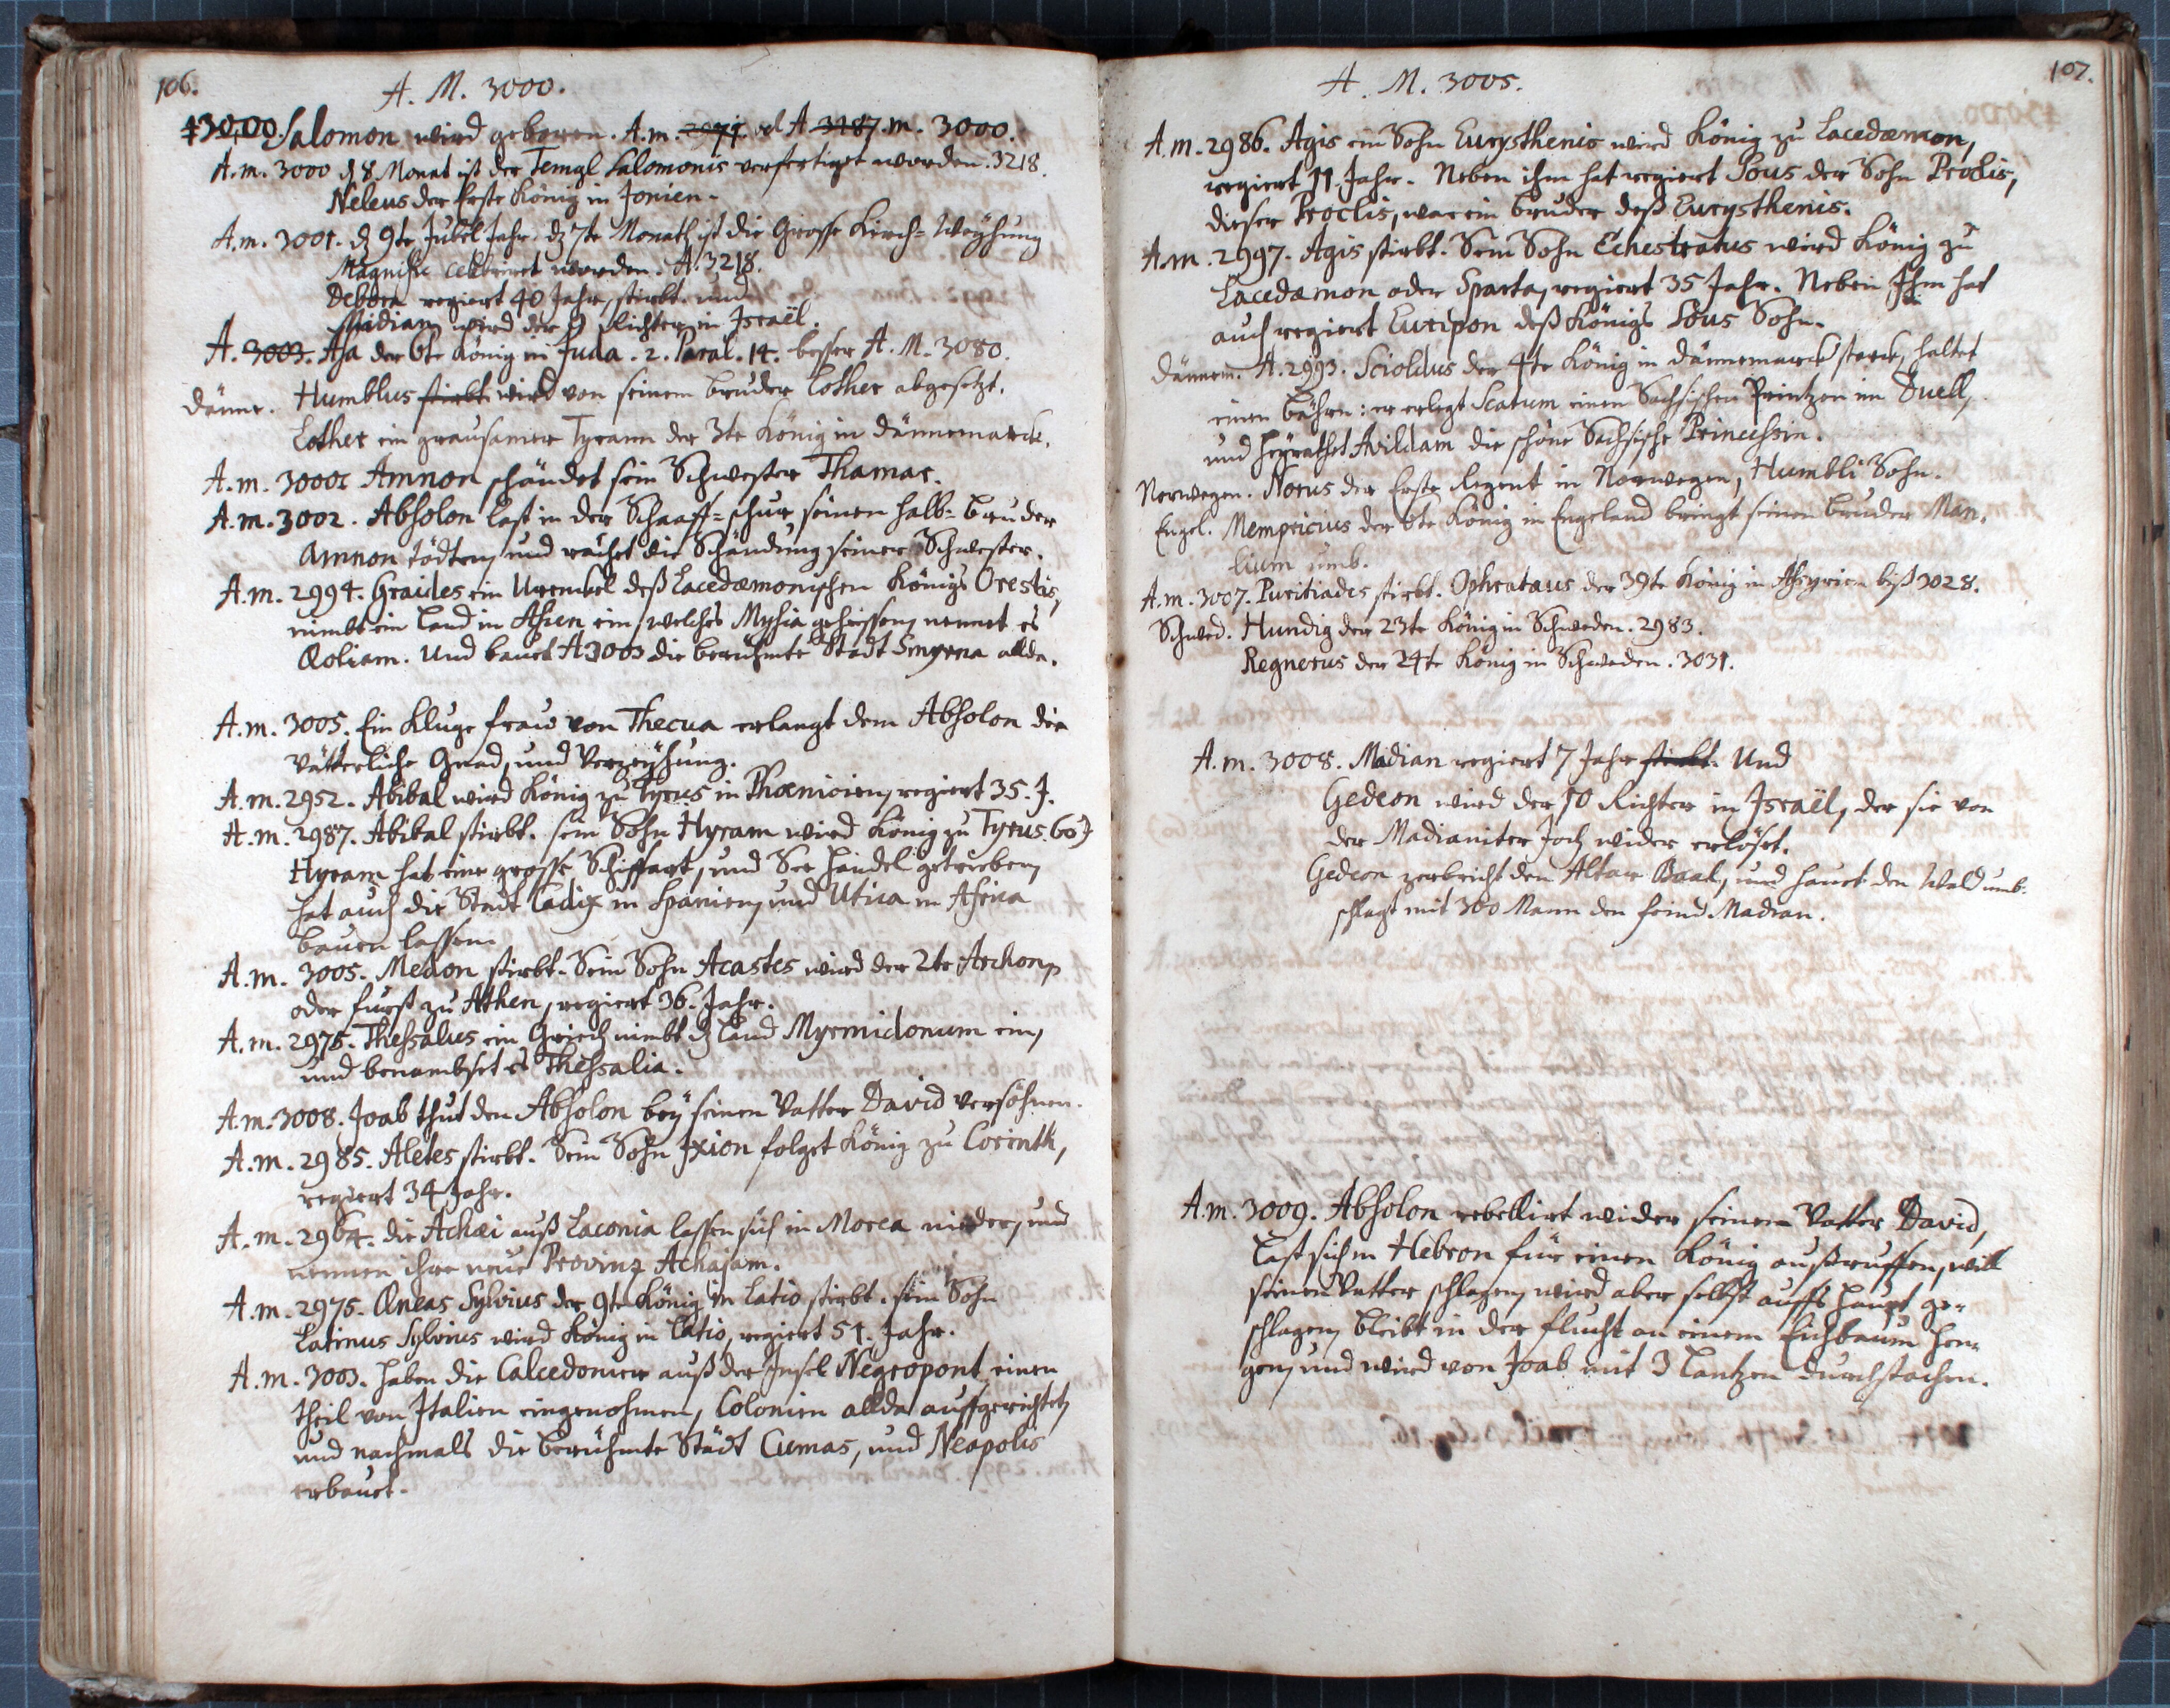 106.
A. M. 3000.
‡3000. Salomon wird geboren. A.m. 2971. vel A 3187. m. 3000.
A.m. 3000 dz 8 Monat ist der Templ Salomonis verfertiget worden. 3218.
Neleus der Erste König in Jonien.
A.m. 3001. dz 9te Jubel Jahr. dz 7te Monath ist die Grosse Kirch-Weÿhung
Magnific celebriret worden. A. 3218.
Debora regiert 40 Jahr, stirbt. und
Midian wird der 9 Richter in Israël.
A. 3003. Asa der 6te König in Juda. 2. Paral. 14. besser A. M. 3080.
Dänne. Humblus stirbt wird von seinem bruder Lother abgesetzt.
Lother ein grausamer Tyrann der 3te König in Dännemarck.
A.m. 3000 Amnon schändet sein Schwester Thamar.
A.m. 3002. Absolon last in der Schaaff-schur seinen halb-bruder
Amnon tödten, und rächet die Schändung seiner Schwester.
A.m. 2994. Graides ein Urenckel deß Lacedæmonischen Königs Orestis,
nimbt ein Land in Asien ein, welches Mysia geheissen, nennet es
Æoliam. Und bauet A 3003 die berühmte Stadt Smyrna allda.
A.m. 3005. Ein Kluge frau von Thecua erlangt dem Absolon die
Vätterliche Gnad, und Verzeÿhung.
A.m. 2952. Abibal wird König zu Tyrus in Phœnicien, regiert 35. J.
A.m. 2987. Abibal stirbt. sein Sohn Hyram wird König zu Tyrus. 60 J
Hyram hat eine grosse Schiffart, und See handel getrieben,
hat auch die Stadt Cadix in Spanien, und Utica in Africa
bauen lassen.
A.m. 3005. Medon stirbt. Sein Sohn Acastes wird der 2te Archon,
oder fürst zu Athen, regiert 36. Jahr.
A.m. 2975. Thessalus ein Griech nimbt dz Land Myrmidonum ein,
und benambset es Thessalia.
A.m. 3008. Joab thut den Absolon beÿ seinen Vatter David versöhnen.
A.m. 2985. Aletes stirbt. Sein Sohn Ixion folget König zu Corinth,
regiert 34 Jahr.
A.m. 2964. die Achæi auß Laconia lassen sich in Morea nieder, und
nennen ihre neue Provinz Achajam.
A.m. 2975. Æneas Sylvius der 9te König in Latio stirbt. sein Sohn
Latinus Sylvius wird König in Latio, regiert 51. Jahr.
A.m. 3003. haben die Calcedonier auß der Insel Negropont einen
theil von Italien eingenohmen, Colonien allda auffgerichtet,
und nachmals die berühmte Städt Cumas, und Neapolis
erbauet.
107.
A. M. 3005.
A.m. 2986. Agis ein Sohn Eurysthenis wird König zu Lacedæmon,
regiert 11. Jahr. Neben ihm hat regiert Sous der Sohn Proclis,
dieser Proclis, war ein bruder deß Eurysthenis.
A.m. 2997. Agis stirbt. Sein Sohn Echestratus wird König zu
Lacedæmon oder Sparta, regiert 35 Jahr. Neben Ihm hat
auch regiert Euripon deß Königs Sous Sohn.
Dännem. A. 2993. Scioldus der 4te König in Dännemarck starck, haltet
einen bähren: er erlegt Scatum einen Sachsischen Printzen im Duell,
und heÿrathet Avildam die schöne Sachsische Princessin.
Norwegen. Norus der Erste Regent in Norwegen, Humbli Sohn.
Engel. Mempricius der 6te König in Engeland bringt seinen bruder Man-
lium umb.
A.m. 3007. Puritiades stirbt. Ophratæus der 39te König in Assyrien biß 3028.
Schwed. Hundig der 23te König in Schweden. 2983.
Regnerus der 24te König in Schweden. 3031.
A.m. 3008. Madian regiert 7 Jahr stirbt. Und
Gedeon wird der 10 Richter in Israël, der sie von
der Madianiter Joch wider erlöset.
Gedeon zerbricht den Altar Baal, und hauet den Wald umb.
schlagt mit 300 Mann den feind Madian.
A.m. 3009. Absolon rebellirt wider seinen Vatter David,
last sich in Hebron für einen König außruffen, will
seinen Vatter schlagen, wird aber selbst auffs haupt ge-
schlagen, bleibt in der flucht an einem Eichbaum hen-
gen, und wird von Joab mit 3 Lantzen durchstochen.